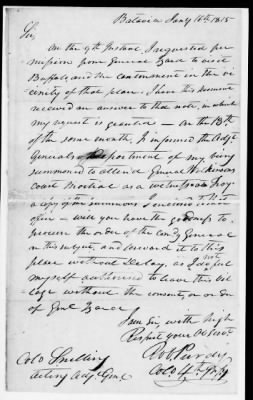 Batavia Jany 16th 1815
Sir,
On the 9th Instant, I requested per
mission from General Izard to visit
Buffalo, and the cantonment in the vi
cinity of that place. I have this moment
received an answer to that note, in which
my request is granted — On the 13th
of the same month, I informed the Adjt
Generals Department of my being
summoned to attend General Wilkinsons
Court Martial as a witness
a copy of the summons I enclosed
office — will you have the goodness to
procure the order of the Comdg General
on this subject, and forward it to this
place without Delay, as I do not
myself authorised to leave this vil
lage without the consent, or order
of Genl Izard
I am Sir, with high
Respect your Ob Servt
Rob. Purdy
Colo 4th Infy
Colo Snelling
Acting Adjt Genl